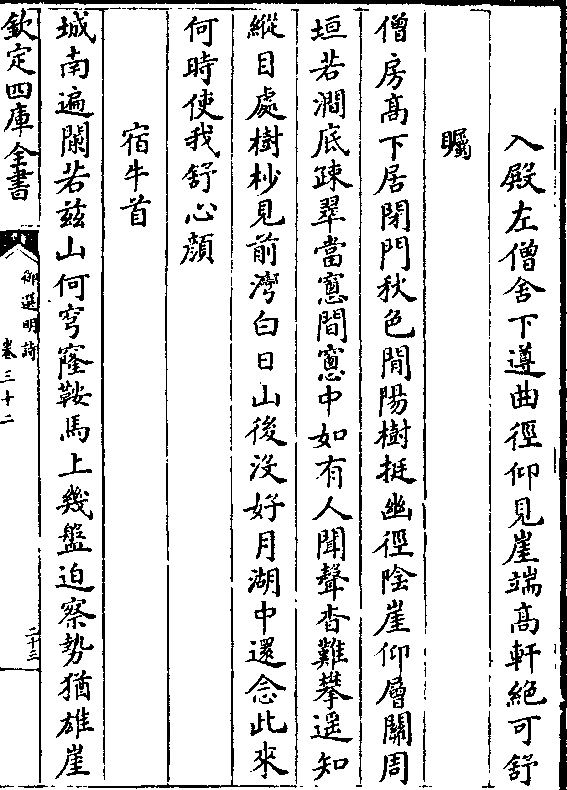 入殿左僧舍下遵曲徑仰見崖端高軒絶可舒
矚
僧房高下居閉門秋色閒陽樹挺幽徑陰崖仰層關周
垣若澗底疎翠當窻間窻中如有人聞聲杳難攀遥知
縱目處樹杪見前灣白日山後没好月湖中還念此來
何時使我舒心顔
宿牛首
城南遍蘭若兹山何穹窿鞍馬上幾盤迫察勢猶雄崖
欽定四庫全書
御選明詩
卷三十二
二十三